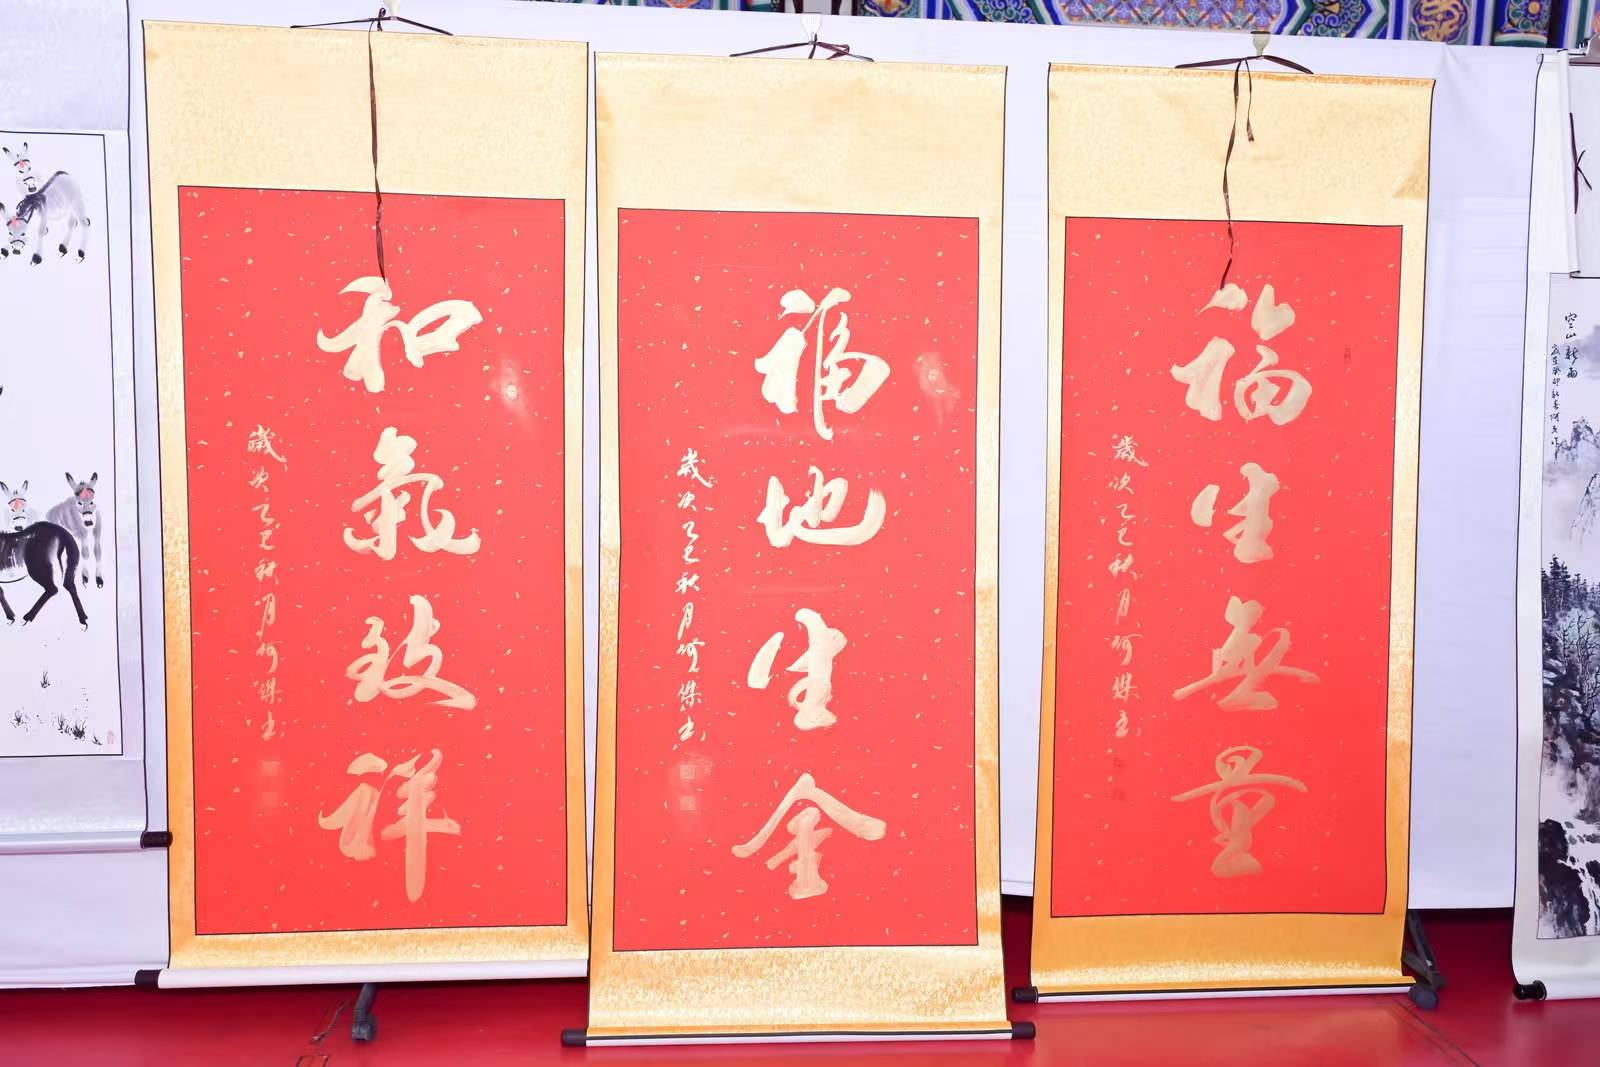 和氣致祥
歲次乙巳秋月何媒书
福地生金
歲次乙巳秋月何媒书
福生無量
歲次乙巳秋月何媒书
空山新雨